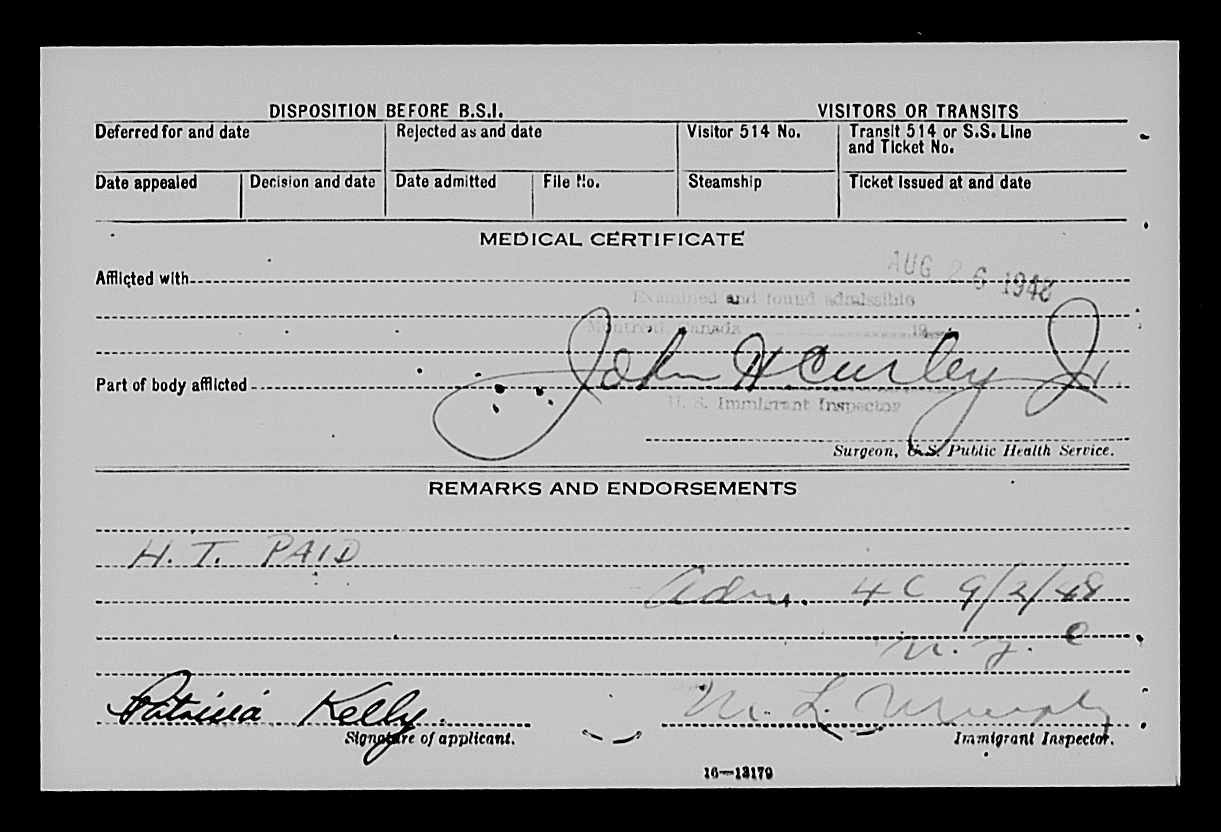 DISPOSITION BEFORE B.S.I. VISITORS OR TRANSITS
Deferred for and date Rejected as and date Visitor 514 No. Transit 514 or S.S. Line and Ticket No.
Date appealed Decision and date Date admitted File No. Steamship Ticket issued at and date
MEDICAL CERTIFICATE
Afflicted with
AUG 26 1948
Examined and found admissible
Montreal, Canada 19
John H Curley Jr.
Part of body afflicted
U. S. Immigrant Inspector
Surgeon, U.S. Public Health Service.
REMARKS AND ENDORSEMENTS
H. T. PAID
Adm. 4C 9/2/48
N. Y. C
Patricia Kelly. M. L. Murphy
Signature of applicant. Immigrant Inspector.
16—13179